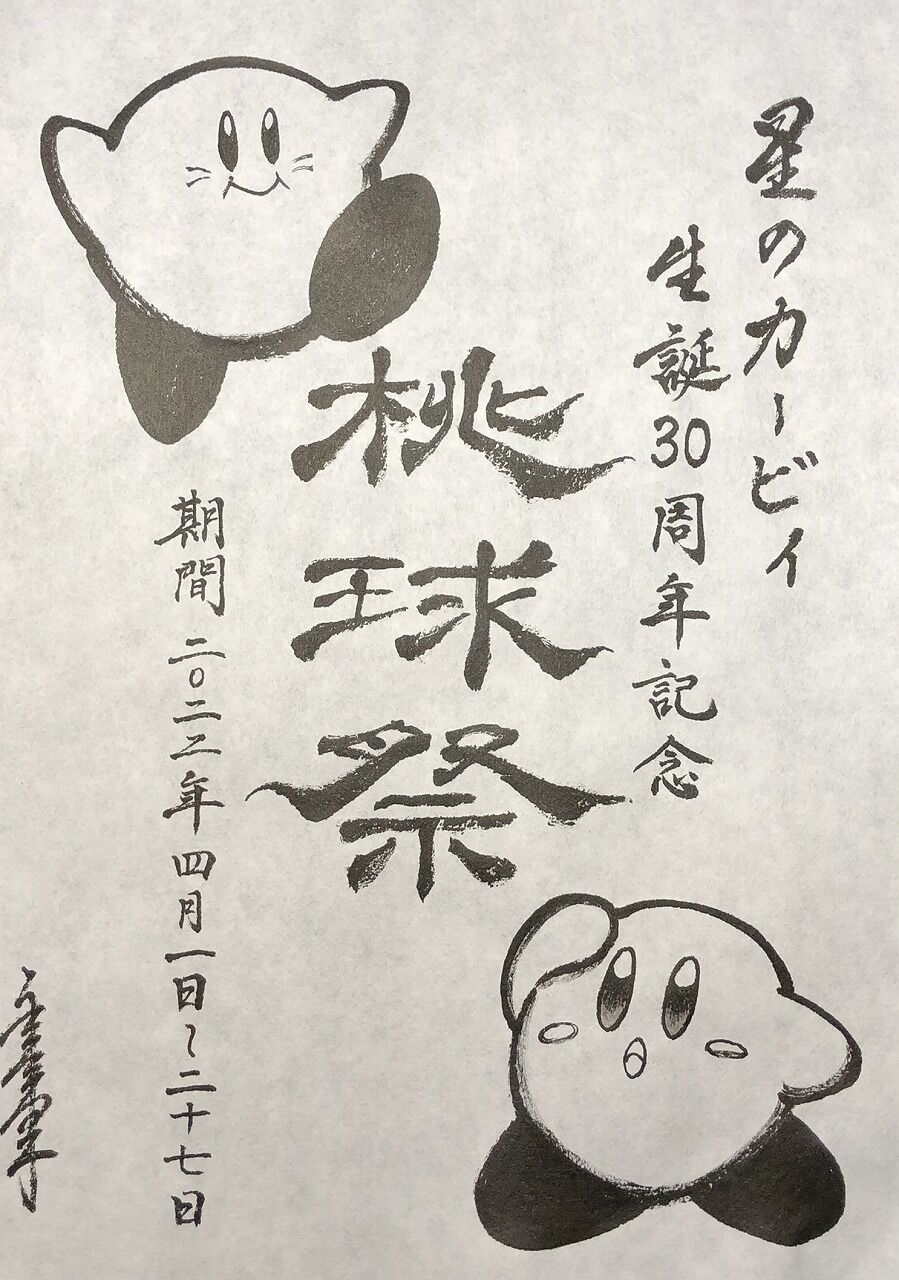 星のカービィ
生誕30周年記念
桃球祭
期間二〇二二年四月一日～二十七日